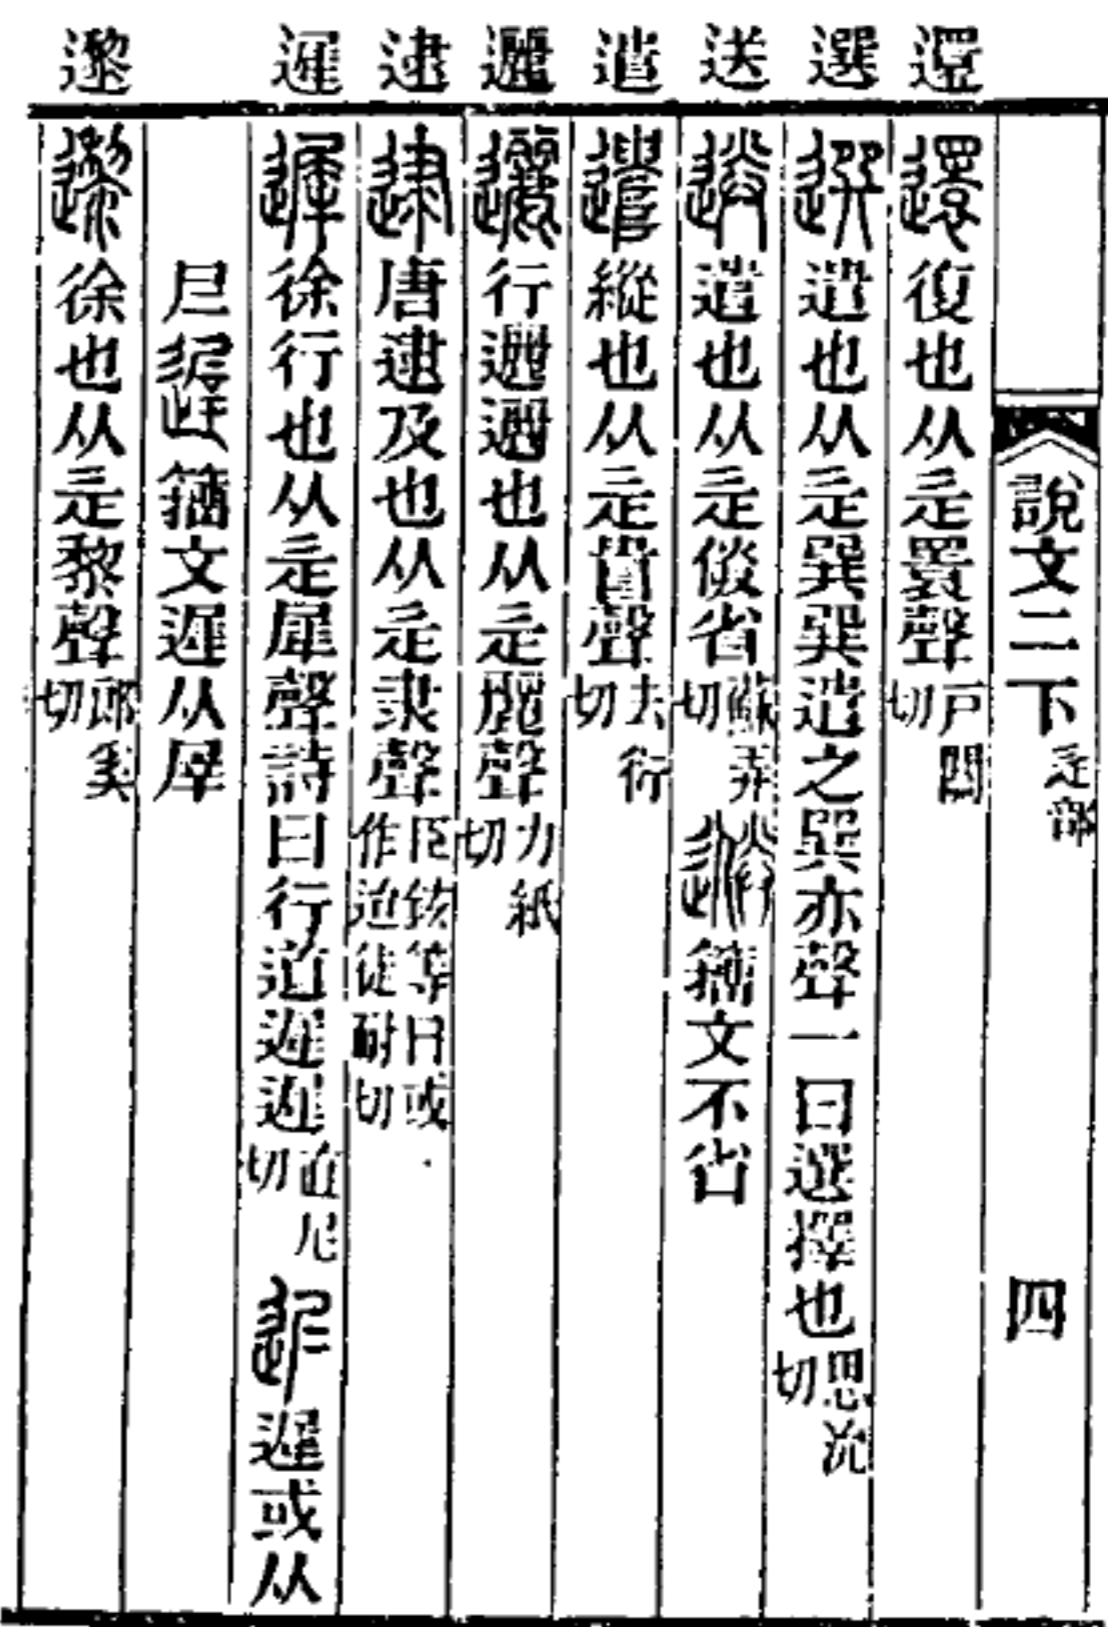 說文二下 辵部 四
還 還 復也从辵瞏聲 戶關切
選 選 遣也从辵巽巽遣之巽亦聲一曰選擇也 思沇切
送 送 遣也从辵倴省 蘇弄切 籀文不省
遣 遣 縱也从辵𠳋聲 去衍切
邐 邐 行邐邐也从辵麗聲 力紙切
逮 逮 唐逮及也从辵隶聲 臣鉉等曰或作迨徒耐切
遲 遲 徐行也从辵犀聲詩曰行道遲遲 直尼切 遲或从
𡰥 籀文遲从屖
邌 邌 徐也从辵黎聲 郎奚切